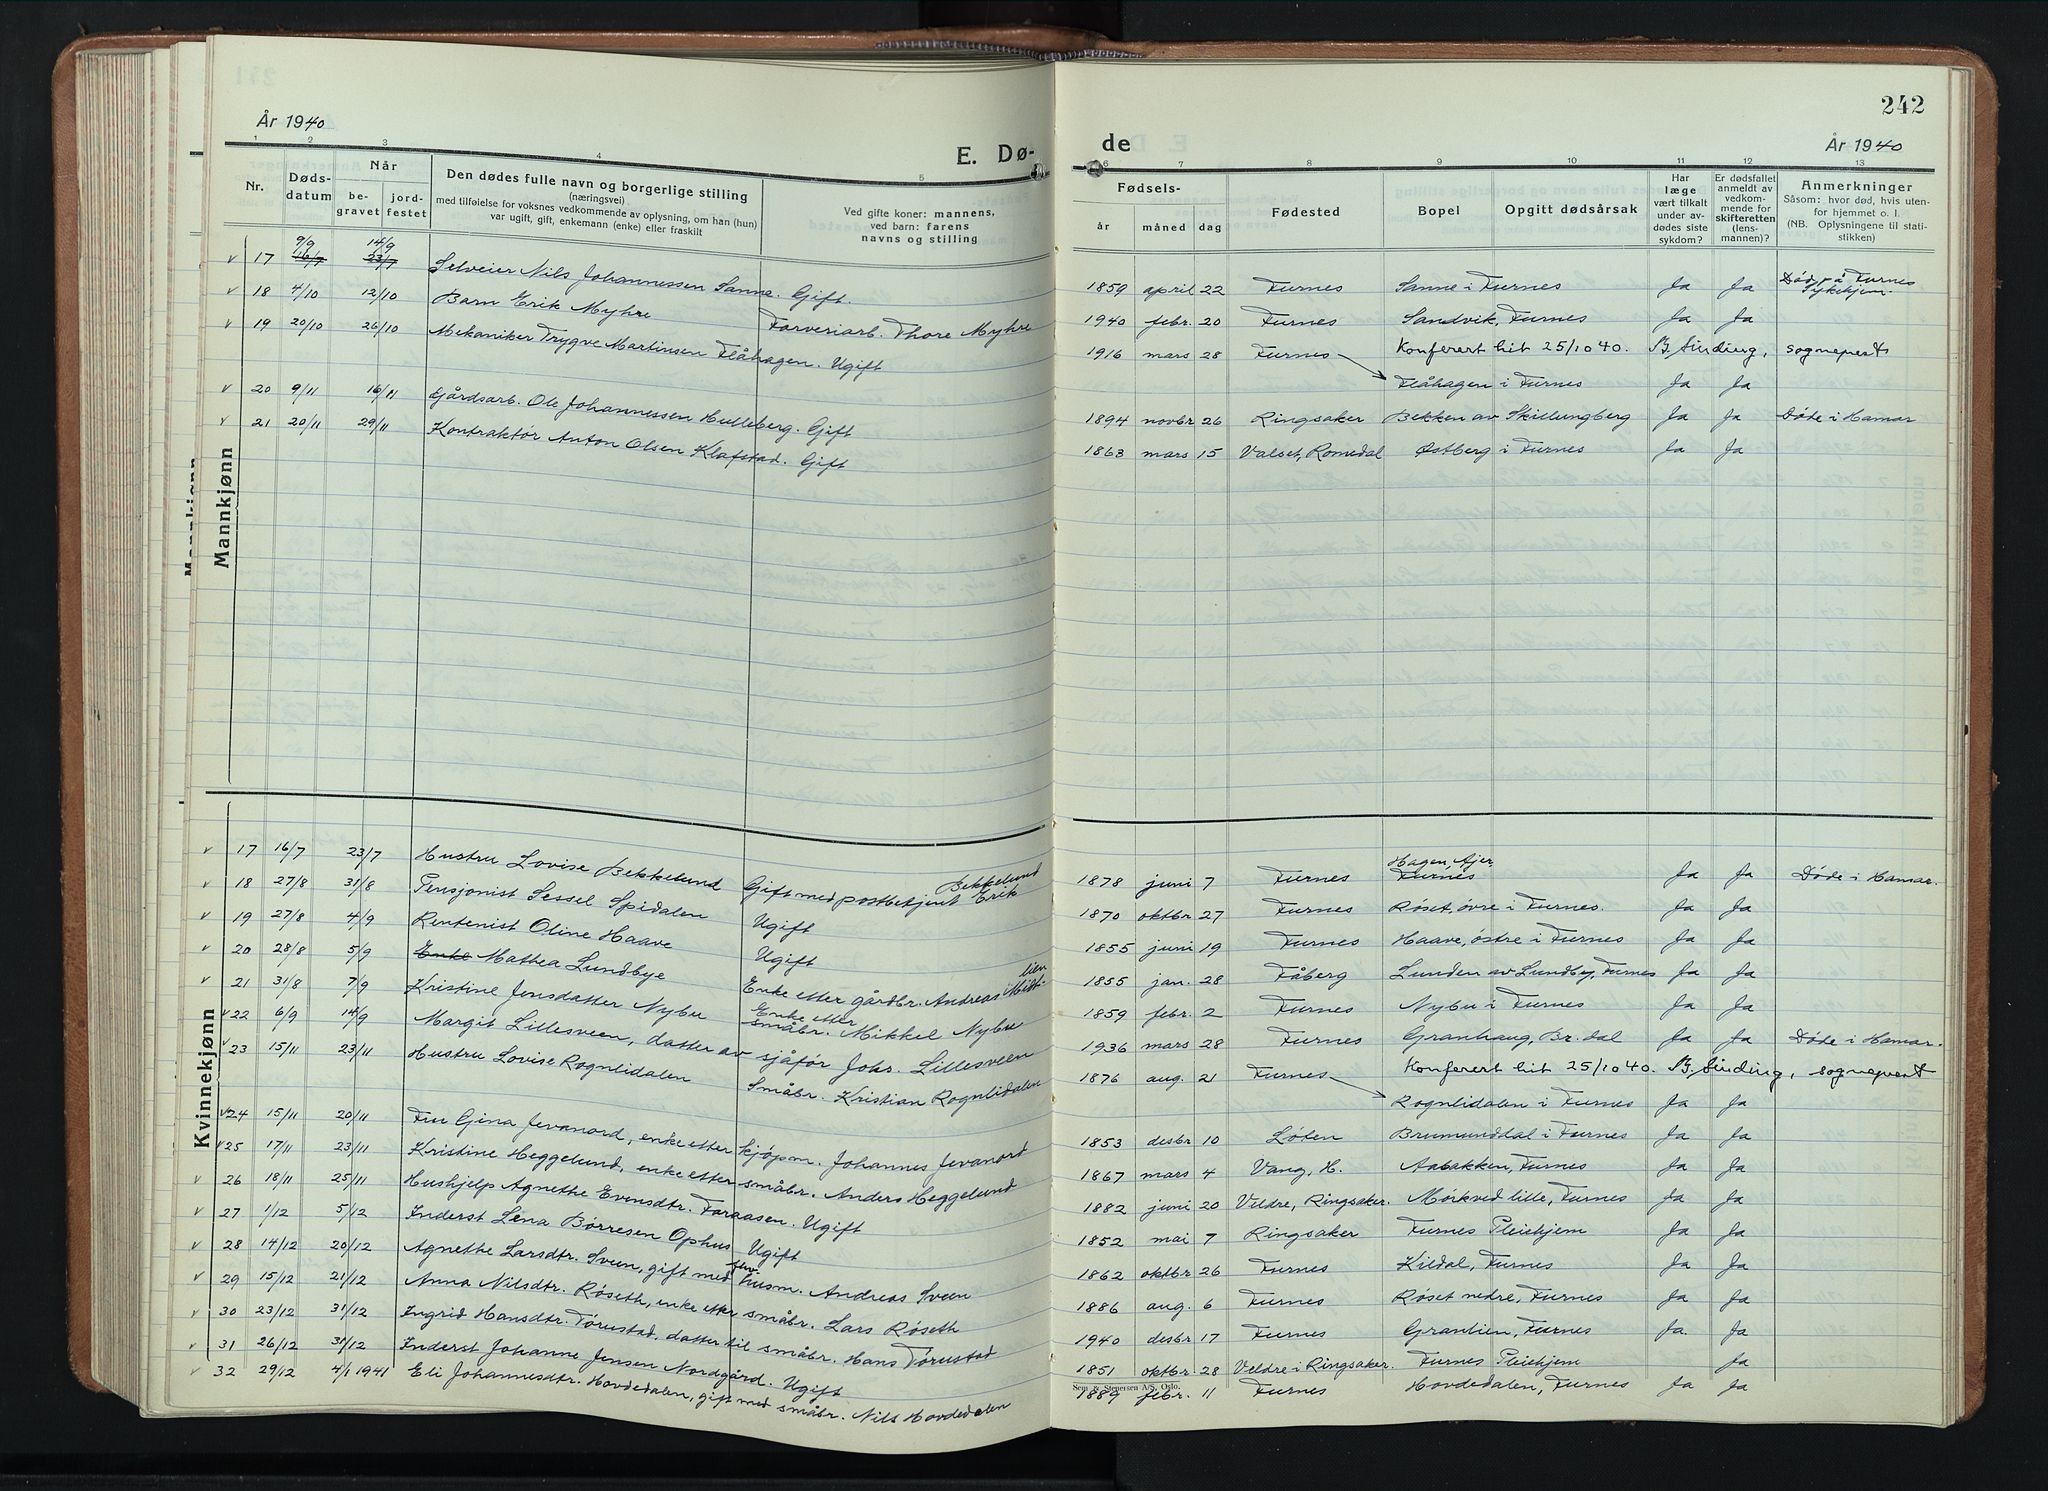 År 1940
E. Dø-
de
År 1940
242
1 2 3 4 5 6 7 8 9 10 11 12 13
Nr.
Døds-
datum
Når
be-
gravet
jord-
festet
Den dødes fulle navn og borgerlige stilling
(næringsvei)
med tilføielse for voksnes vedkommende av oplysning, om han (hun)
var ugift, gift, enkemann (enke) eller fraskilt
Ved gifte koner: mannens,
ved barn: farens
navns og stilling
Fødsels-
år måned dag
Fødested
Bopel
Opgitt dødsårsak
Har
læge
vært tilkalt
under av-
dødes siste
sykdom?
Er dødsfallet
anmeldt av
vedkom-
mende for
skifteretten
(lens-
mannen)?
Anmerkninger
Såsom: hvor død, hvis uten-
for hjemmet o. l.
(NB. Oplysningene til stati-
stikken)
Mannkjønn
v 17 9/9 16/7 14/9 23/7 Selveier Nils Johannessen Sanne. Gift. 1859 april 22 Furnes Sanne i Furnes Ja Ja Død på Furnes Sykehjem.
v 18 4/10 12/10 Barn Erik Myhre Farveriarb. Thore Myhre 1940 febr. 20 Furnes Sandvik, Furnes Ja Ja
v 19 20/10 26/10 Mekaniker Trygve Martinsen Flåhagen. Ugift 1916 mars 28 Furnes Konferert hit 25/10 40. B. Sinding, sogneprest
Flåhagen i Furnes Ja Ja
v 20 9/11 16/11 Gårdsarb. Ole Johannessen Hulleberg. Gift 1894 novbr 26 Ringsaker Bekken av Skillungberg Ja Ja Døde i Hamar
v 21 20/11 29/11 Kontraktør Anton Olsen Klafstad. Gift 1863 mars 15 Valset, Romedal Østberg i Furnes Ja Ja
Kvinnekjønn
v 17 16/7 23/7 Hustru Lovise Bekkelund Gift med postbetjent Erik Bekkelund 1878 juni 7 Furnes Hagen, Ajer, Furnes Ja Ja Døde i Hamar.
v 18 27/8 31/8 Pensjonist Sessel Spidalen Ugift 1870 oktbr 27 Furnes Røset, øvre i Furnes. Ja Ja
v 19 27/8 4/9 Rentenist Oline Haave Ugift 1855 juni 19 Furnes Haave, østre i Furnes Ja Ja
v 20 28/8 5/9 Enke Mathea Lundbye Enke etter gårdbr. Andreas Midtlien 1855 jan. 28 Fåberg Lunden av Lundby, Furnes Ja Ja
v 21 31/8 7/9 Kristine Jensdatter Nybu Enke etter småbr. Mikkel Nybu 1859 febr. 2 Furnes Nybu i Furnes Ja Ja
v 22 6/9 14/9 Margit Lillesveen, datter av sjåfør Johr. Lillesveen 1936 mars 28 Furnes Granhaug, Br. dal Ja Ja Døde i Hamar.
v 23 15/11 23/11 Hustru Lovise Rognlidalen Småbr. Kristian Rognlidalen 1876 aug. 21 Furnes Konferert hit 25/10 40. B. Sinding, sogneprest
Rognlidalen i Furnes Ja Ja
v 24 15/11 20/11 Fru Gina Jevanord, enke etter kjøpm. Johannes Jevanord 1853 desbr 10 Løten Brumunddal i Furnes Ja Ja
v 25 17/11 23/11 Kristine Heggelund, enke etter småbr. Anders Heggelund 1867 mars 4 Vang, H. Aabakken, Furnes Ja Ja
v 26 18/11 25/11 Hushjelp Agnethe Evensdtr. Foraasen. Ugift 1882 juni 20 Veldre, Ringsaker. Mørkved lille, Furnes Ja Ja
v 27 1/12 5/12 Inderst Lena Børresen Ophus Ugift 1852 mai 7 Ringsaker Furnes Pleiehjem Ja Ja
v 28 14/12 20/12 Agnethe Larsdtr. Sveen, gift med husm. Andreas Sveen 1862 oktbr 26 Furnes Kildal, Furnes Ja Ja
v 29 15/12 21/12 Anna Nilsdtr. Røseth, enke etter småbr. Lars Røseth 1886 aug. 6 Furnes Røset nedre, Furnes Ja Ja
v 30 23/12 31/12 Ingrid Hansdtr. Tørustad, datter til småbr. Hans Tørustad 1940 desbr 17 Furnes Granlien, Furnes Ja. Ja
v 31 26/12 31/12 Inderst Johanne Jensen Nordgård. Ugift 1851 oktbr. 28 Veldre i Ringsaker. Furnes Pleiehjem Ja
v 32 29/12 4/1 1941 Eli Johannesdtr. Hovdedalen, gift med småbr. Nils Hovdedalen 1889 febr. 11 Furnes Hovdedalen, Furnes Ja Ja
Sem & Stenersen A/S, Oslo.